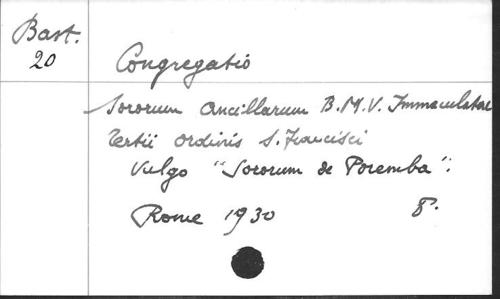 Bast.
20
Congregatio
Sororum Ancillarum B.M.V. Immaculatae
Tertii ordinis S. Francisci
Vulgo "Sororum de Poremba".
Rome 1930 8.